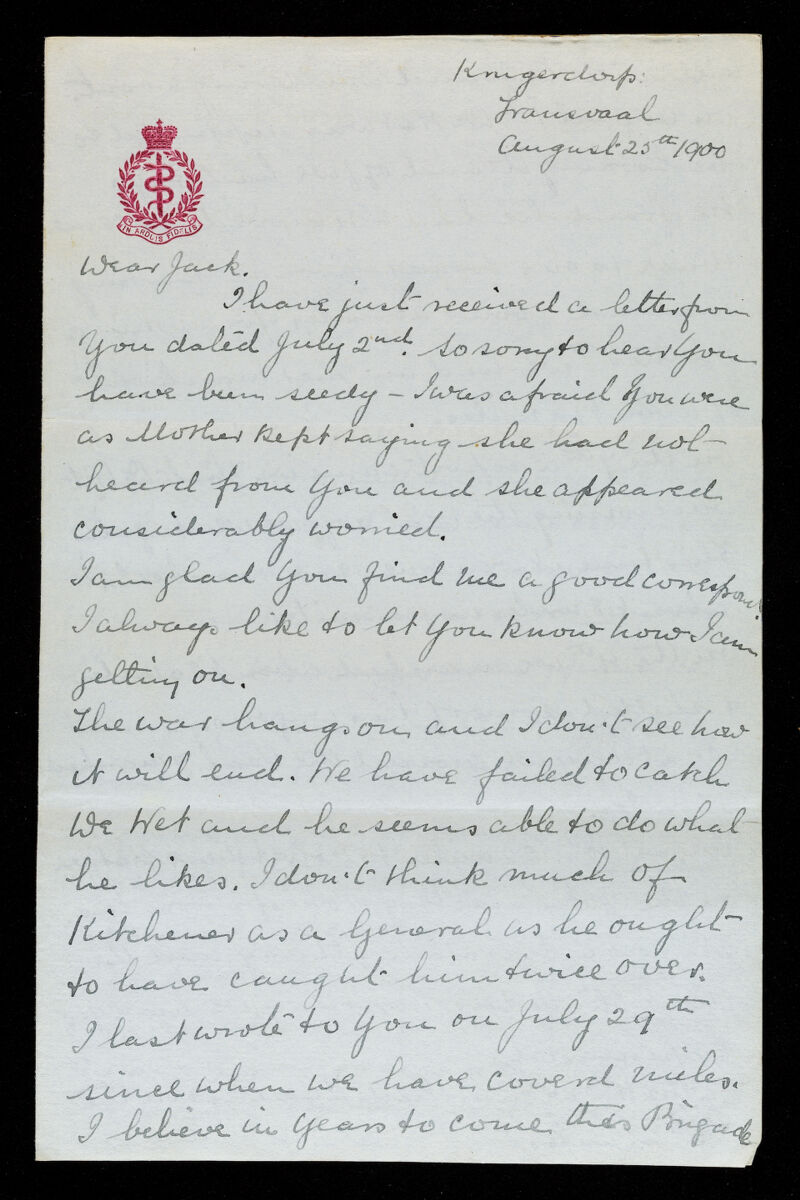 Krugersdorp:
Transvaal
August 25th 1900
IN ARDUIS FIDELIS
Dear Jack.
I have just received a letter from
You dated July 2nd. So sorry to hear You
have been seedy – I was afraid You were
as Mother kept saying she had not
heard from You and she appeared
considerably worried.
I am glad You find me a good correspondt.
I always like to let You know how I am
getting on.
The war hangs on and I don't see how
it will end. We have failed to catch
De Wet and he seems able to do what
he likes. I don't think much of
Kitchener as a General as he ought
to have caught him twice over.
I last wrote to You on July 29th
since when we have coverd miles.
I believe in years to come this Brigade